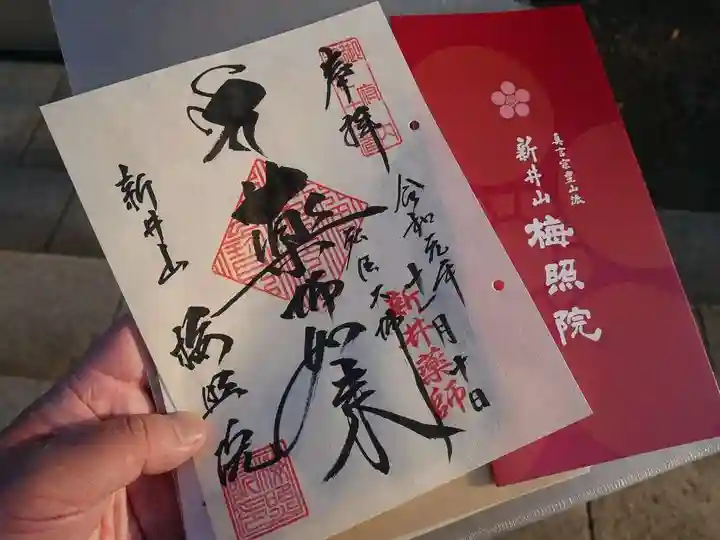 奉拝
令和元年十一月十日
弘法大師
薬師如来
新井山
梅照院
新井薬師
真言宗豊山派
新井山
梅照院